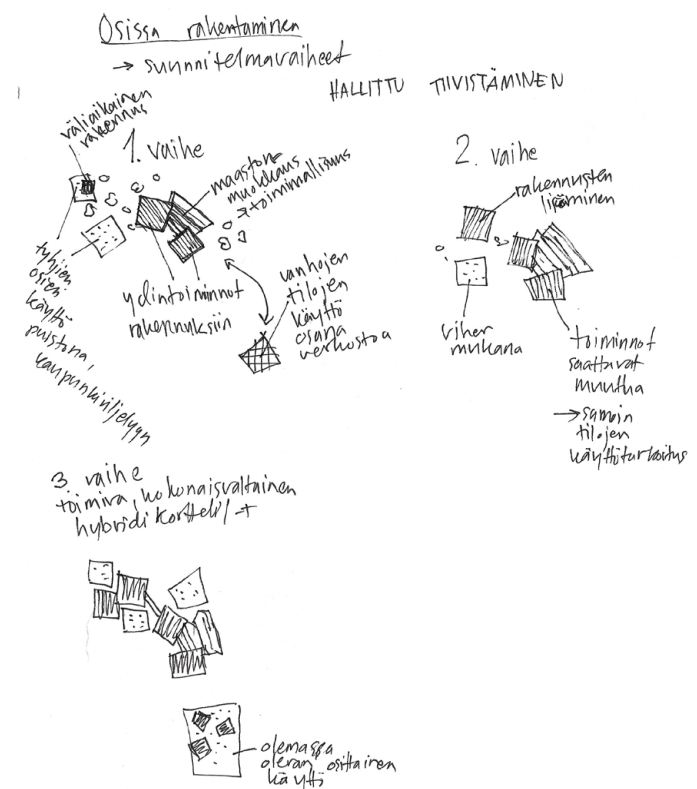 Osissa rakentaminen
→ suunnitelmavaiheet
HALLITTU TIIVISTÄMINEN
väliaikainen
rakennus
1. vaihe
maaston
muokkaus
→ toiminnallisuus
tyhjien
osien
käyttö
puistona,
kaupunkiviljelyyn
ydintoiminnot
rakennuksiin
vanhojen
tilojen
käyttö
osana
verkostoa
2. vaihe
rakennusten
lisääminen
viher
mukana
toiminnot
saattavat
muuttua
→ samoin
tilojen
käyttötarkoitus
3. vaihe
toimiva, kokonaisvaltainen
hybridikortteli/-t
olemassa
olevan osittainen
käyttö